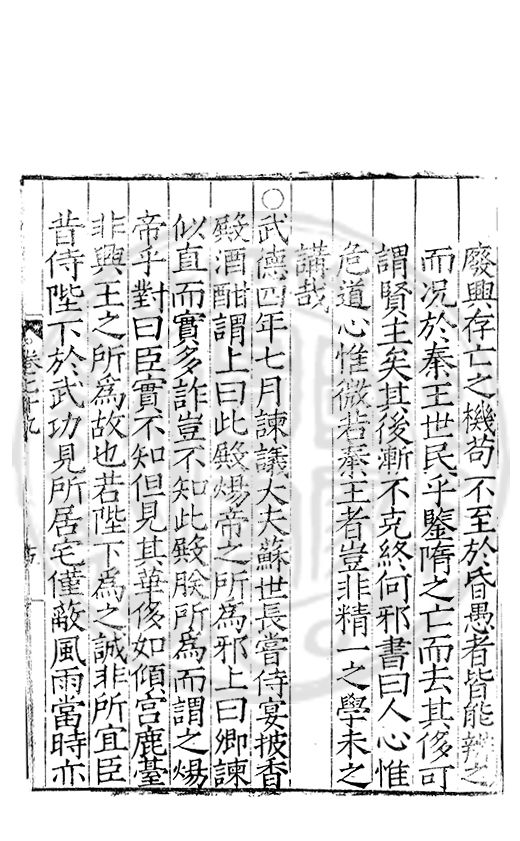 廢興存亡之機苟不至於昏愚者皆能辨之
而况於秦王世民乎鑒隋之亡而去其侈可
謂賢主矣其後漸不克終何邪書曰人心惟
危道心惟微若秦王者豈非精一之學未之
講哉
○武德四年七月諫議大夫蘇世長嘗侍宴披香
殿酒酣謂上曰此殿煬帝之所爲邪上曰卿諫
似直而實多詐豈不知此殿朕所爲而謂之煬
帝乎對曰臣實不知但見其華侈如傾宫鹿臺
非興王之所爲故也若陛下爲之誠非所宜臣
昔侍陛下於武功見所居宅僅蔽風雨當時亦
卷七十九